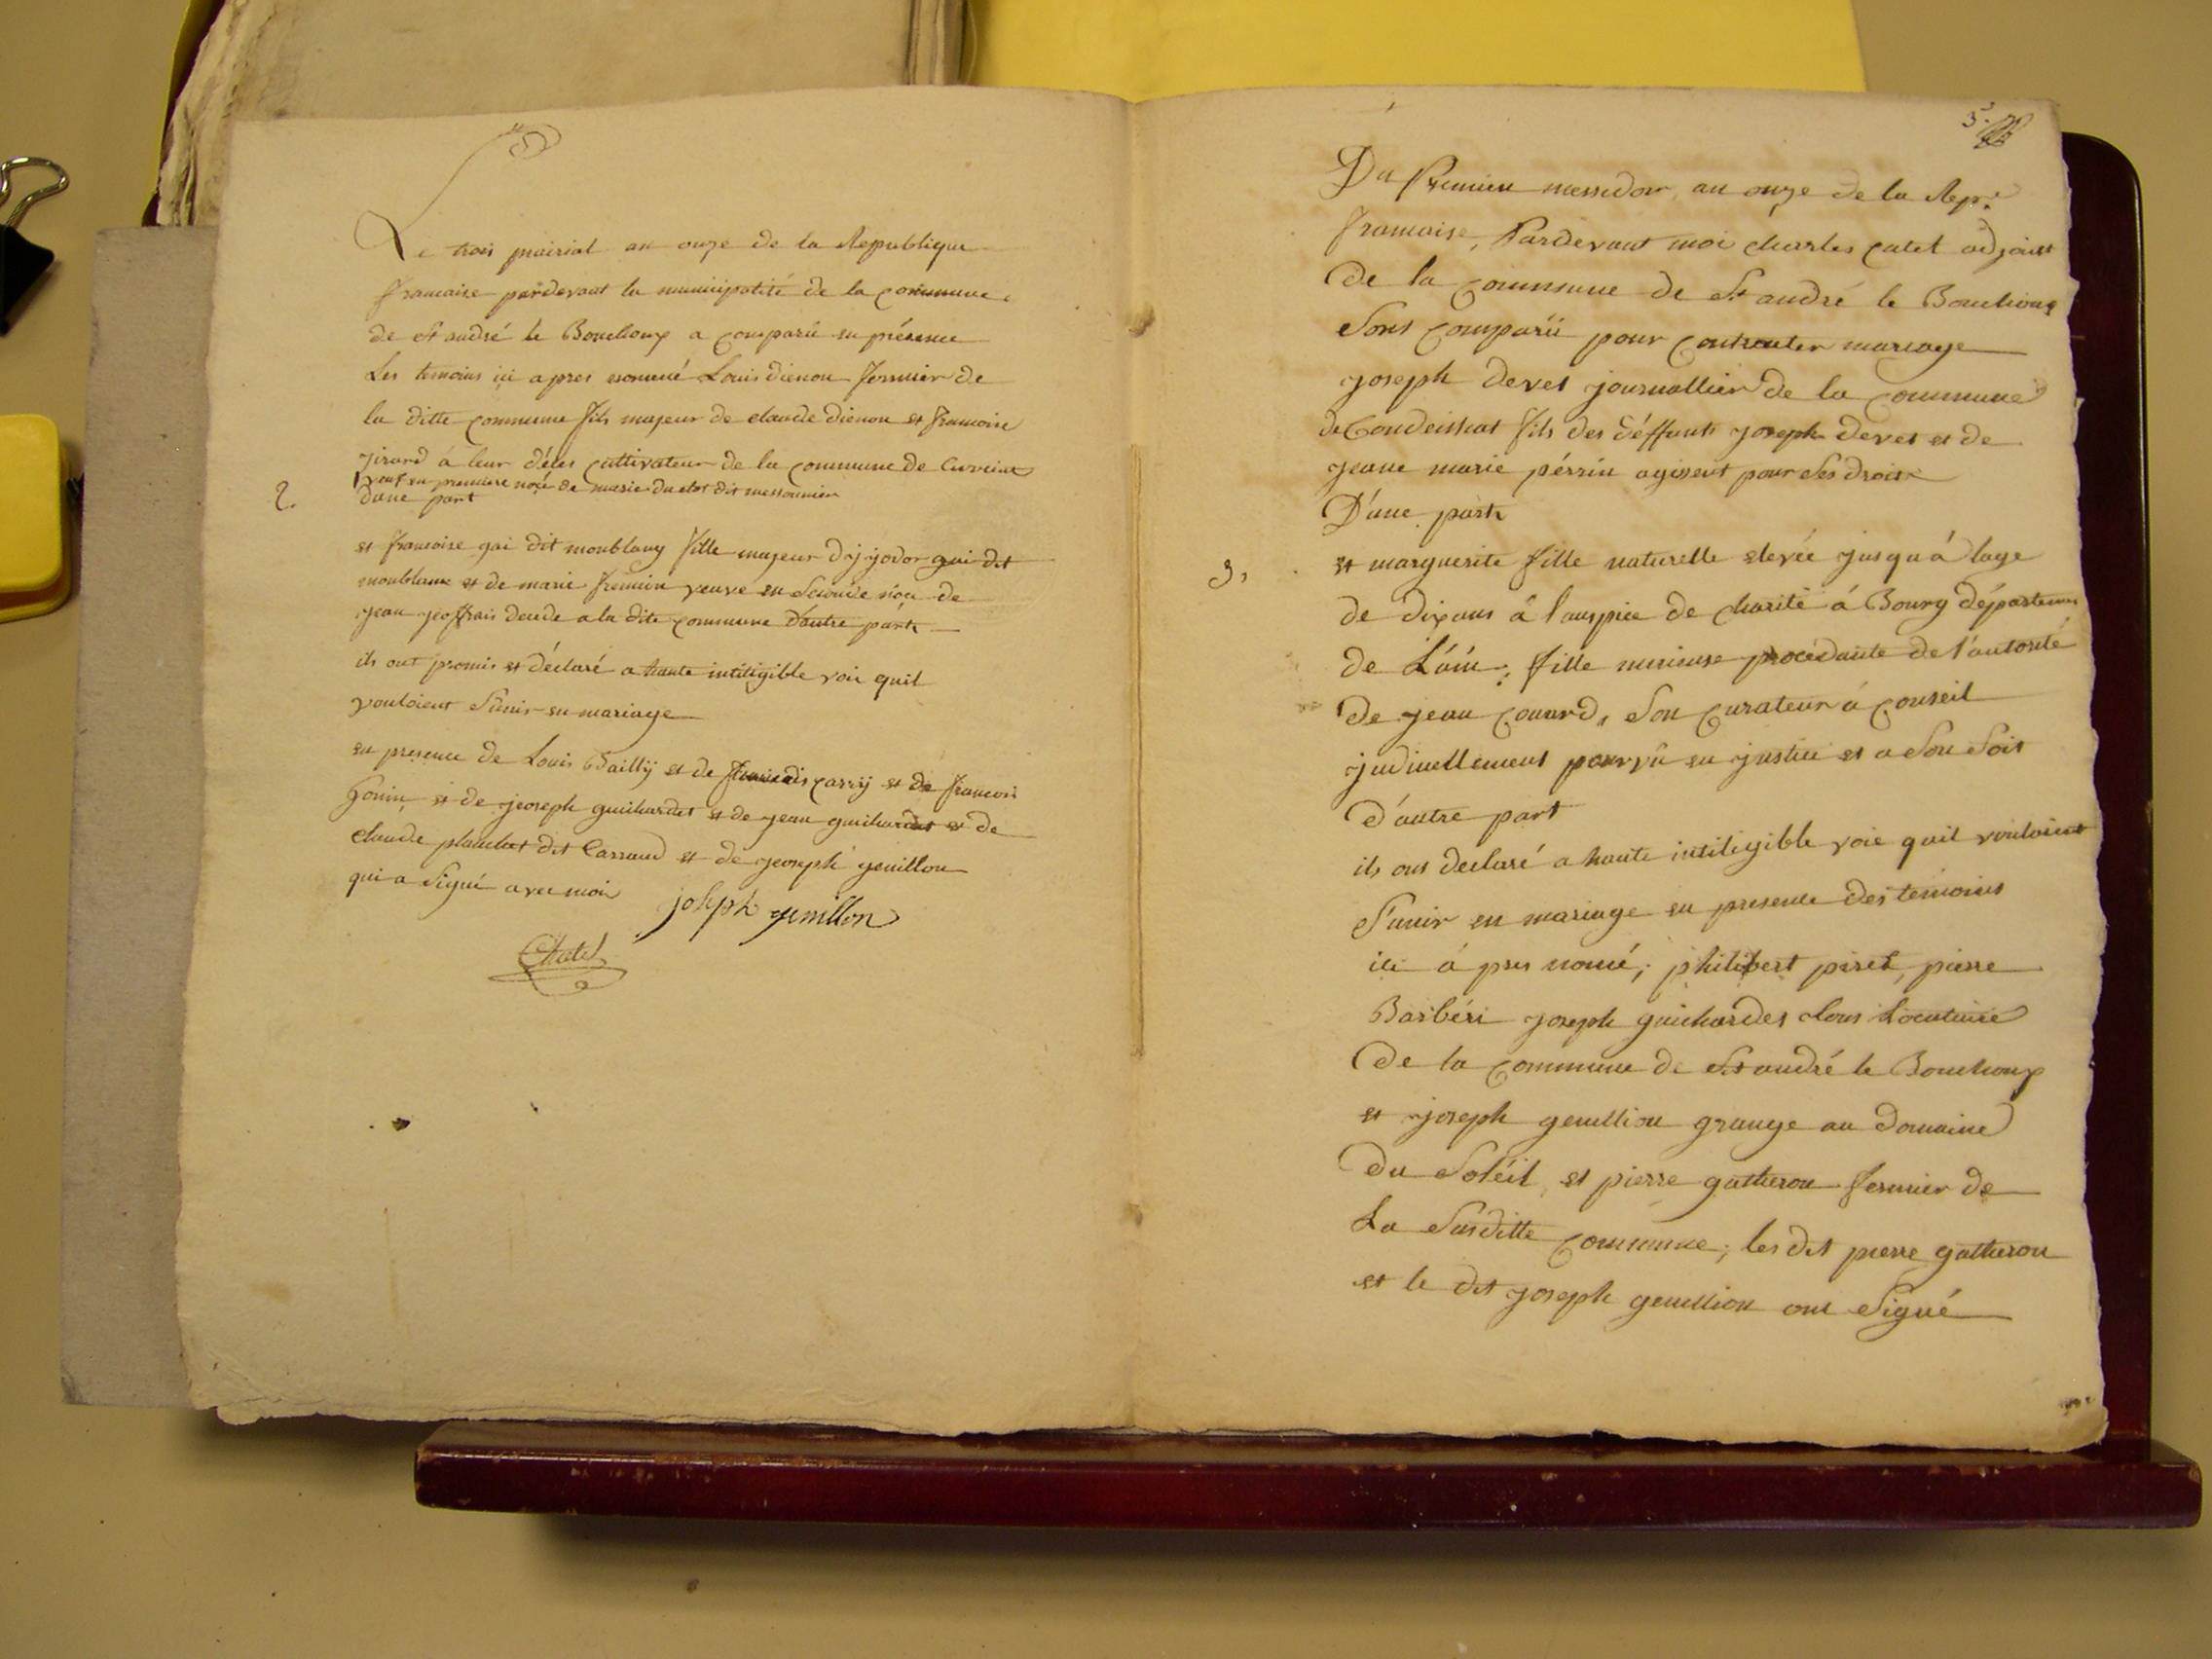 Le trois prairial an onze de la Republique
francaise pardevant la municipalité de la commune
de St andré le Bouchoux a comparû en présence
des temoins ici apres nommé Louis dienon fermier de
la ditte commune fils majeur de claude dienon et francoise
girard á leur décés cultivateur de la commune de Curciat
veuf en premiere noce de marie du clos dit messonnier
2. dune part
et francoise gai dit monblang fille majeur dy jodor gai dit
monblanc et de marie fremin veuve en seconde noce de
jean jeoffrais decede a la dite commune dautre part
ils ont promis et déclaré a haute intiligible voie quil
vouloient sunir en mariage
en presence de Louis Baillÿ et de francois carrÿ et de francois
gonin et de jeoseph guichardet et de jean guichardet et de
claude planchet dit Carraud et de jeoseph genillon
qui a signé avec moi joseph genillon
Chatel
5.
Du Premier messidor an onze de la Rep.
francaise, Pardevant moi charles catel adjoint
de la commune de St andré le Bouchoux
Sont comparü pour contracter mariage
joseph devet journallier de la commune
de Condeissiat fils des déffunts joseph devet et de
jeane marie pérrin agissent pour ses droits
D'une part
3. et marguerite fille naturelle elevée jusqu'á lage
de dix ans á l'auspice de charité á Bourg départemen
de L'áin; fille mineure procédante de l'autorité
de jean couard, son curateur á conseil
judiciellement pourvû en justice et a son soit
d'autre part
ils ont declaré a haute intiligible voie quil vouloient
S'unir en mariage en presence des temoins
ici á pres nomé; philibert piret, pierre
Barbéri joseph guichardet tous Locataire
de la commune de St andré le Bouchoux
et joseph genillion grange au domaine
du Soléil, et pierre gatheron fermier de
La Susditte commune; les dit pierre gatheron
et le dit joseph genillion ont Signé